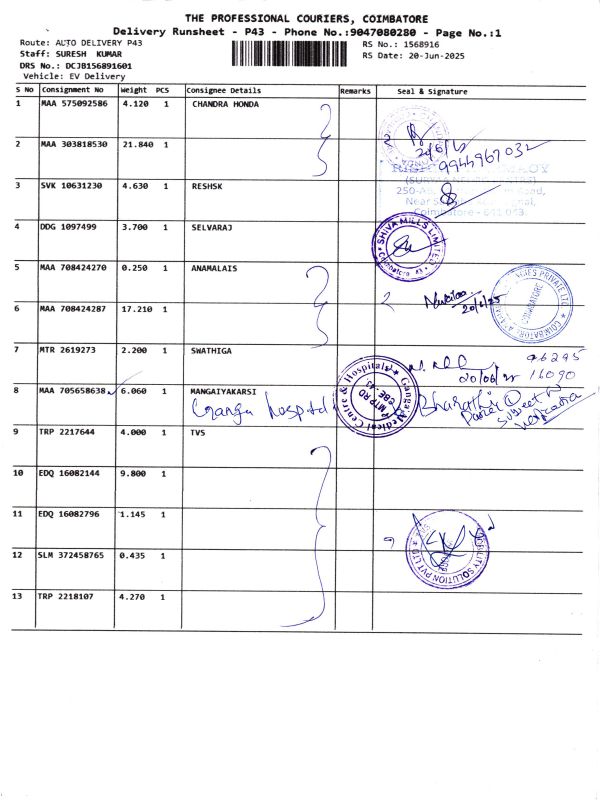 THE PROFESSIONAL COURIERS, COIMBATORE
Delivery Runsheet - P43 - Phone No.:9047080280 - Page No.:1
Route: AUTO DELIVERY P43
Staff: SURESH KUMAR
DRS No.: DCJB156891601
Vehicle: EV Delivery
RS No.: 1568916
RS Date: 20-Jun-2025
S No Consignment No Weight PCS Consignee Details Remarks Seal & Signature
1 MAA 575092586 4.120 1 CHANDRA HONDA
20/6/
9944967032
2 MAA 303818530 21.840 1
3 SVK 10631230 4.630 1 RESHSK
250-A
Road,
Near
Coimbatore - 641 043.
4 DDG 1097499 3.700 1 SELVARAJ
SHIVA MILLS LIMITED
Coimbatore
5 MAA 708424270 0.250 1 ANAMALAIS
20/6/25
PRIVATE LTD
COIMBATORE
6 MAA 708424287 17.210 1
7 MTR 2619273 2.200 1 SWATHIGA
96295
20/06/25 16090
8 MAA 705658638 6.060 1 MANGAIYAKARSI
Ganga hospital
Ganga Medical Centre & Hospitals
MTP RD
CBE-43
Bharathi
9 TRP 2217644 4.000 1 TVS
10 EDQ 16082144 9.800 1
11 EDQ 16082796 1.145 1
MOBILITY SOLUTION PVT LTD
12 SLM 372458765 0.435 1
13 TRP 2218107 4.270 1